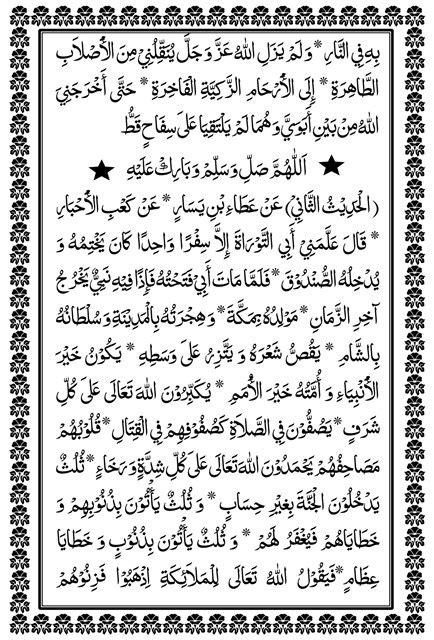 بِهِ فِي النَّارِ * وَلَمْ يَزَلِ اللهُ عَزَّ وَجَلَّ يُنَقِّلُنِيْ مِنَ الْأَصْلَابِ
الطَّاهِرَةِ * إِلَى الْأَرْحَامِ الزَّكِيَّةِ الْفَاخِرَةِ * حَتَّى أَخْرَجَنِيَ
اللهُ مِنْ بَيْنِ أَبَوَيَّ وَهُمَا لَمْ يَلْتَقِيَا عَلَى سِفَاحٍ قَطُّ
★ اَللّٰهُمَّ صَلِّ وَسَلِّمْ وَبَارِكْ عَلَيْهِ ★
(الْحَدِيْثُ الثَّانِي) عَنْ عَطَاءِ بْنِ يَسَارٍ * عَنْ كَعْبِ الْأَحْبَارِ
* قَالَ عَلَّمَنِي أَبِي التَّوْرَاةَ إِلَّا سِفْرًا وَاحِدًا كَانَ يَخْتِمُهُ وَ
يُدْخِلُهُ الصُّنْدُوْقَ * فَلَمَّا مَاتَ أَبِيْ فَتَحْتُهُ فَإِذَا فِيْهِ نَبِيٌّ يَخْرُجُ
آخِرَ الزَّمَانِ * مَوْلِدُهُ بِمَكَّةَ * وَهِجْرَتُهُ بِالْمَدِيْنَةِ وَسُلْطَانُهُ
بِالشَّامِ * يَقُصُّ شَعْرَهُ وَ يَتَّزِرُ عَلَى وَسَطِهِ * يَكُوْنُ خَيْرَ
الْأَنْبِيَاءِ وَ أُمَّتُهُ خَيْرَ الْأُمَمِ * يُكَبِّرُوْنَ اللهَ تَعَالَى عَلَى كُلِّ
شَرَفٍ * يَصُفُّوْنَ فِي الصَّلَاةِ كَصُفُوْفِهِمْ فِي الْقِتَالِ * قُلُوْبُهُمْ
مَصَاحِفُهُمْ يَحْمَدُوْنَ اللهَ تَعَالَى عَلَى كُلِّ شِدَّةٍ وَرَخَاءٍ * ثُلُثٌ
يَدْخُلُوْنَ الْجَنَّةَ بِغَيْرِ حِسَابٍ * وَ ثُلُثٌ يَأْتُوْنَ بِذُنُوْبِهِمْ وَ
خَطَايَاهُمْ فَيُغْفَرُ لَهُمْ * وَ ثُلُثٌ يَأْتُوْنَ بِذُنُوْبٍ وَ خَطَايَا
عِظَامٍ * فَيَقُوْلُ اللهُ تَعَالَى لِلْمَلَائِكَةِ اِذْهَبُوْا فَزِنُوْهُمْ